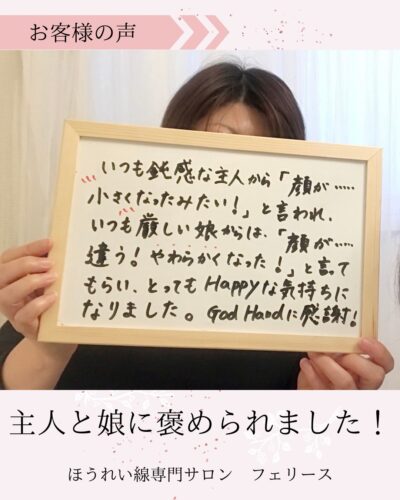 お客様の声
いつも鈍感な主人から「顔が……
小さくなったみたい！」と言われ、
いつも厳しい娘からは、「顔が……
違う！やわらかくなった！」と言って
もらい、とってもHappyな気持ちに
なりました。God Handに感謝！
主人と娘に褒められました！
ほうれい線専門サロン　フェリース